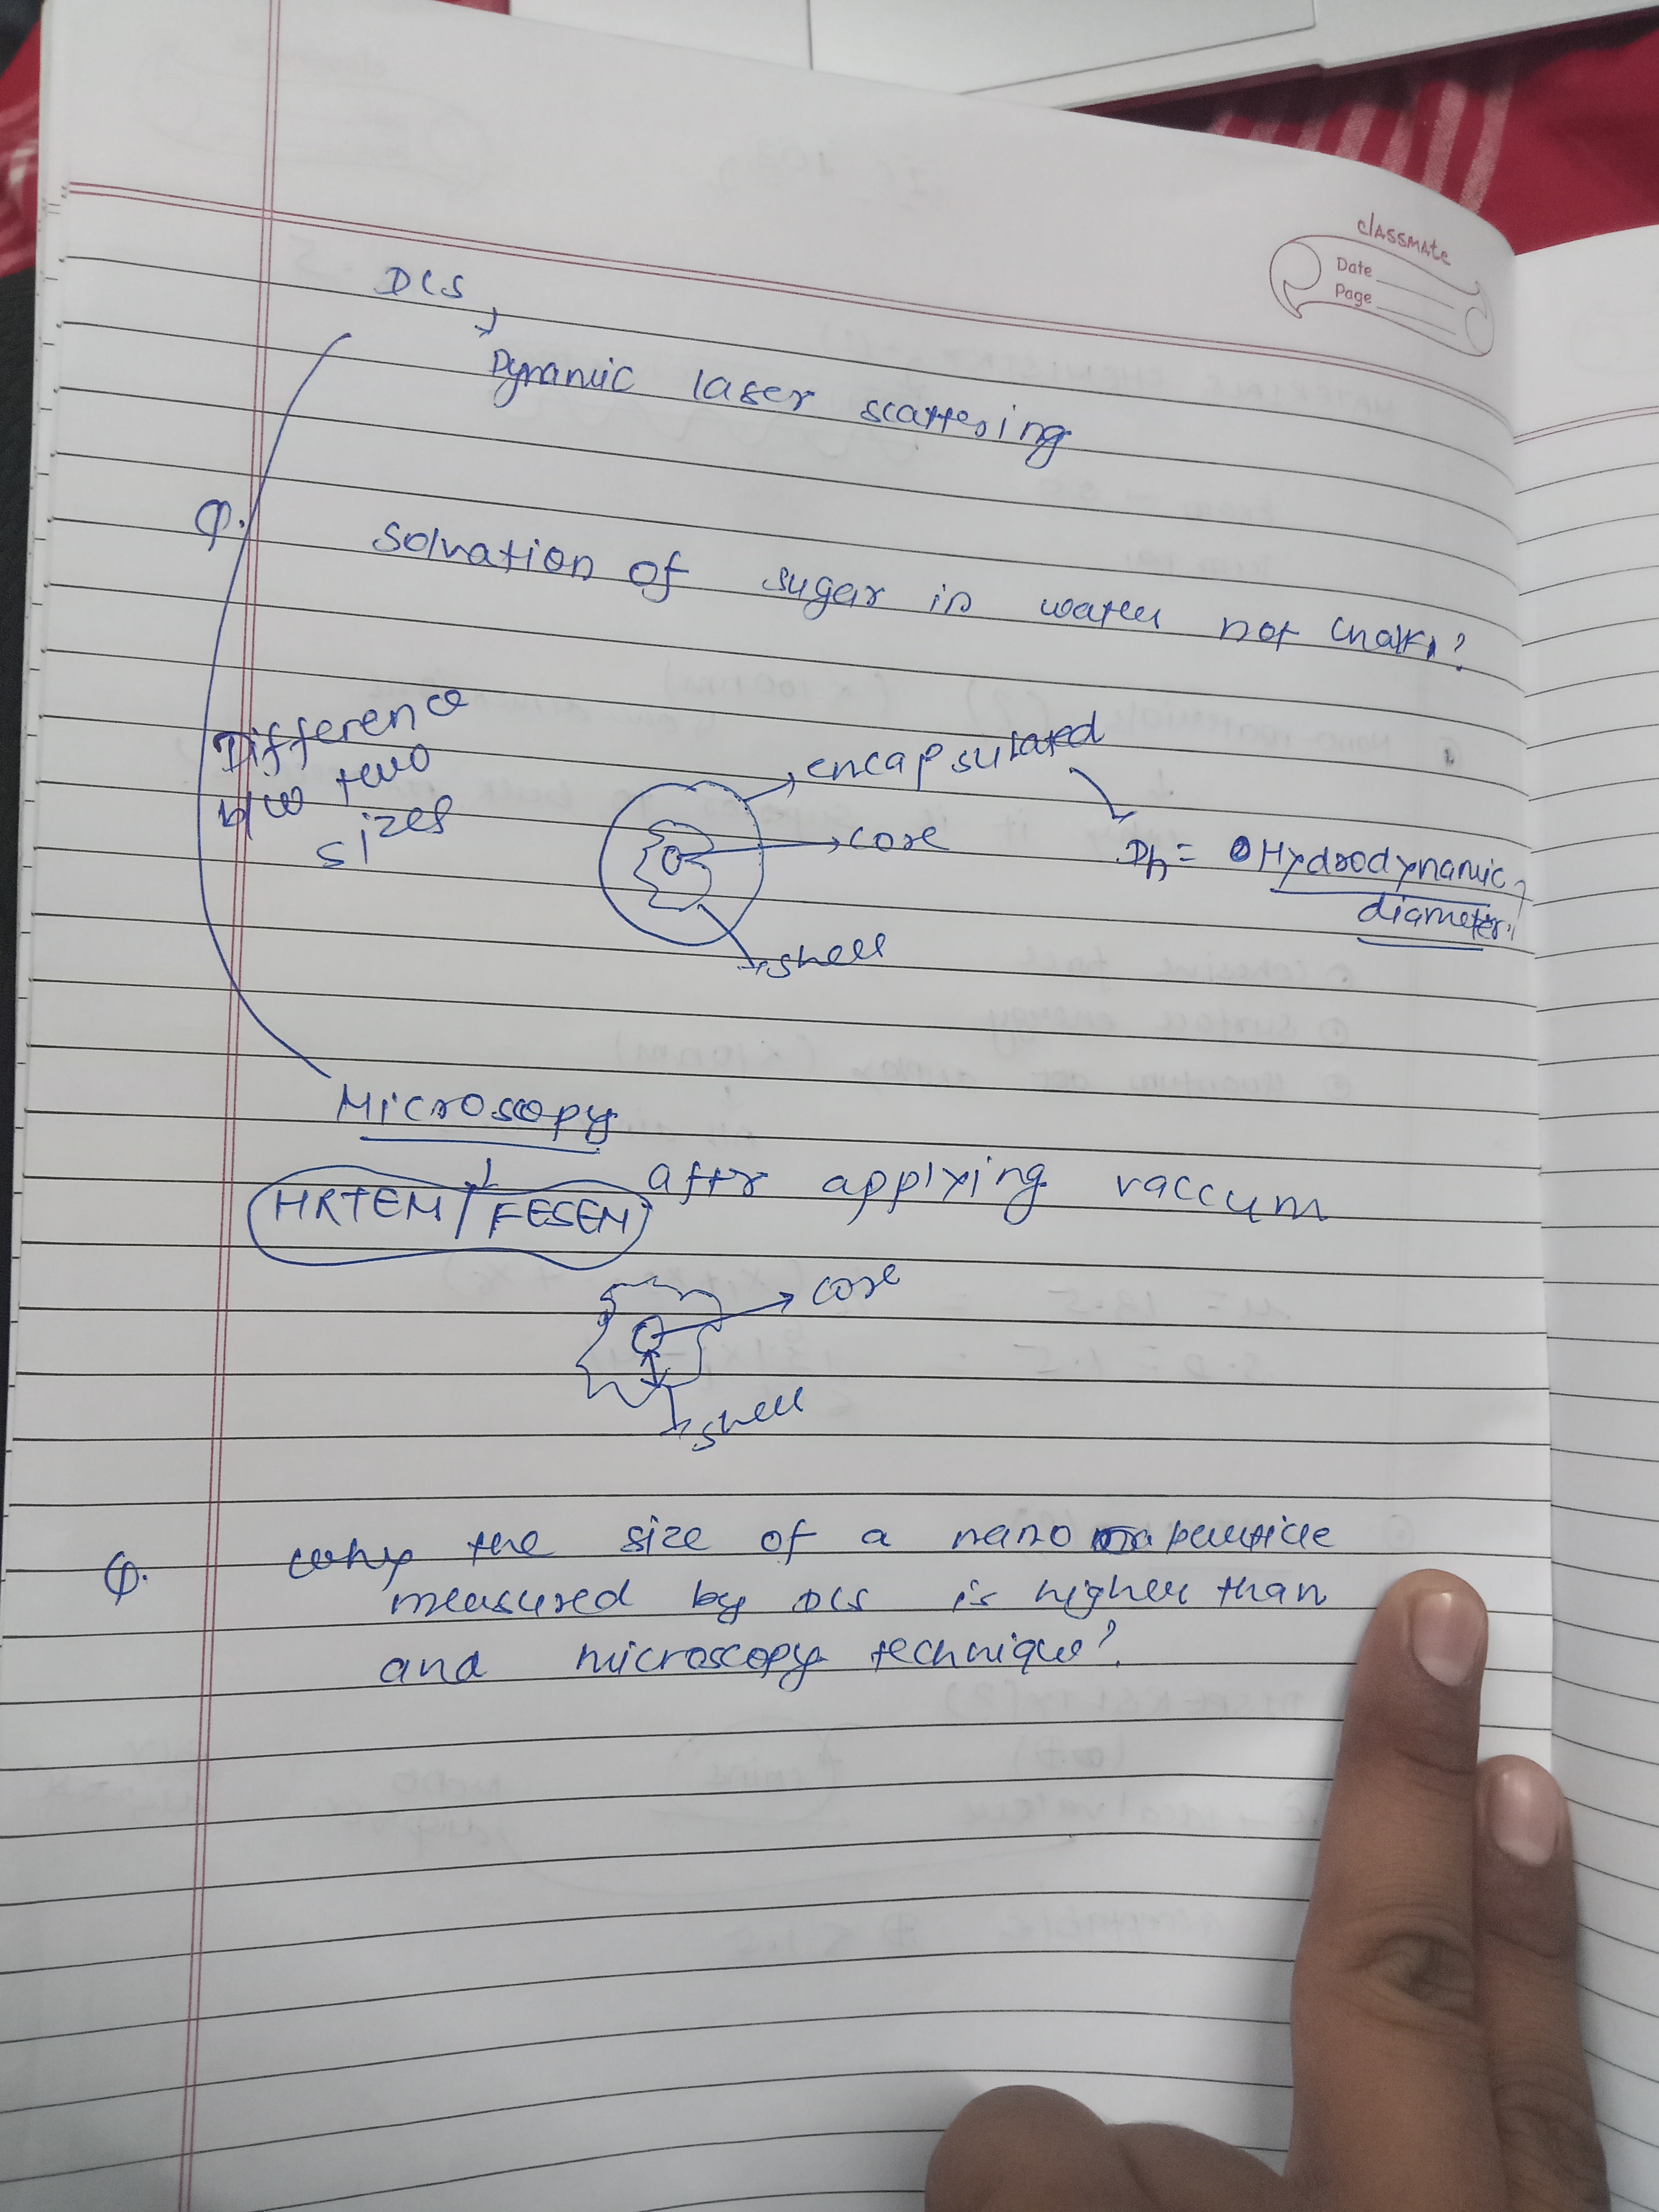 classmate
Date
Page
DLS
Dynamic laser scattering
Q. Solvation of sugar in water not chalk?
Difference
b/w two
sizes
encapsulated
core
shell
Dh = Hydrodynamic
diameter
Microscopy
HRTEM / FESEM after applying vaccum
core
shell
Q. Why the size of a nano particle
measured by DLS is higher than
and microscopy technique?